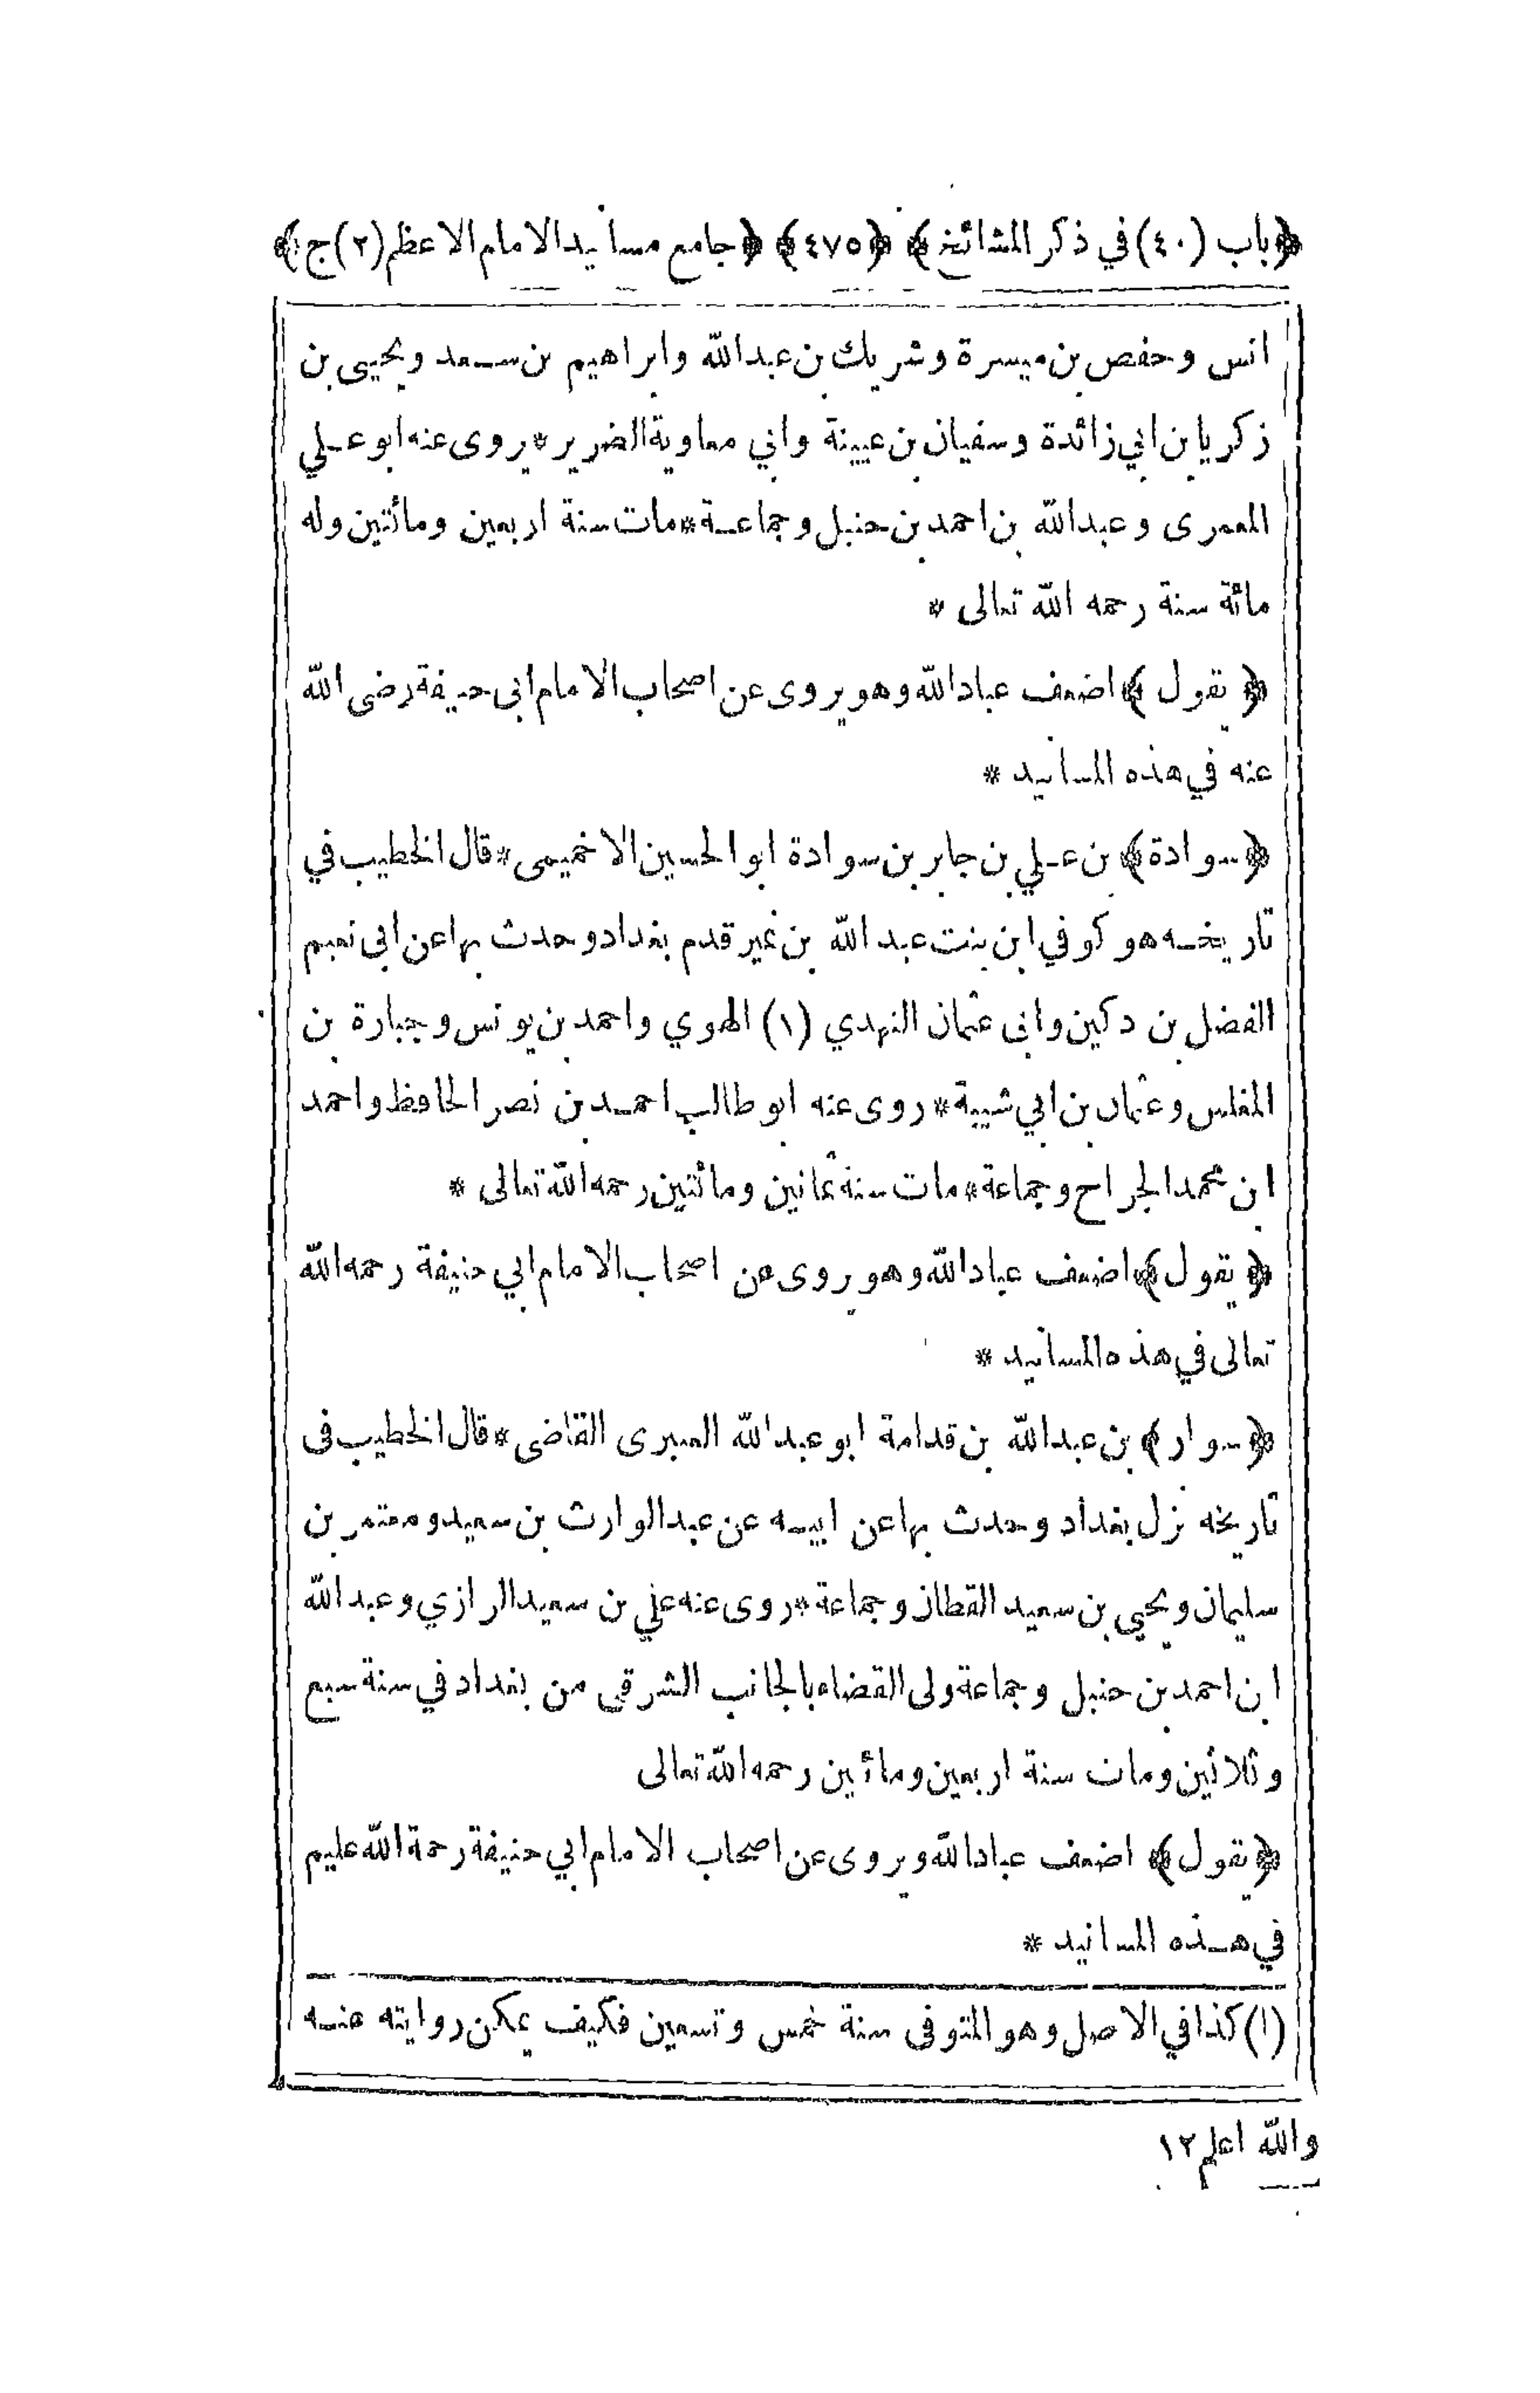 ﴿باب (٤٠) في ذكر المشائخ﴾ ﴿٤٧٥﴾ ﴿جامع مسانيد الامام الاعظم (٢) ج﴾
انس وحفص بن ميسرة وشريك بن عبدالله وابراهيم بن سعد ويحيى بن
زكريا بن ابي زائدة وسفيان بن عيينة وابي معاوية الضرير * يروى عنه ابو علي
المعمرى وعبدالله بن احمد بن حنبل وجماعة * مات سنة اربعين ومائتين وله
مائة سنة رحمه الله تعالى *
﴿يقول﴾ اضعف عبادالله وهو يروى عن اصحاب الامام ابى حنيفة رضى الله
عنه في هذه المسانيد *
﴿سوادة﴾ بن علي بن جابر بن سوادة ابو الحسين الاخميمى * قال الخطيب في
تاريخه هو كوفي ابن بنت عبد الله بن نمير قدم بغداد وحدث بها عن ابي نعيم
الفضل بن دكين وابى عثمان النهدي (١) الهوي واحمد بن يونس وجبارة بن
المغلس وعثمان بن ابي شيبة * روى عنه ابو طالب احمد بن نصر الحافظ واحمد
ابن محمد الجراح وجماعة * مات سنة ثمانين ومائتين رحمه الله تعالى *
﴿يقول﴾ اضعف عبادالله وهو يروى عن اصحاب الامام ابي حنيفة رحمه الله
تعالى في هذه المسانيد *
﴿سوار﴾ بن عبدالله بن قدامة ابو عبدالله العنبرى القاضى * قال الخطيب فى
تاريخه نزل بغداد وحدث بها عن ابيه عن عبدالوارث بن سعيد ومعتمر بن
سليمان ويحيى بن سعيد القطان وجماعة * روى عنه علي بن سعيد الرازي وعبدالله
ابن احمد بن حنبل وجماعة ولى القضاء بالجانب الشرقى من بغداد في سنة سبع
وثلاثين ومات سنة اربعين ومائتين رحمه الله تعالى
﴿يقول﴾ اضعف عبادالله ويروى عن اصحاب الامام ابي حنيفة رحمة الله عليم
في هذه المسانيد *
(١) كذا في الاصل وهو المتوفى سنة خمس وتسعين فكيف يمكن روايته عنه
والله اعلم ١٢